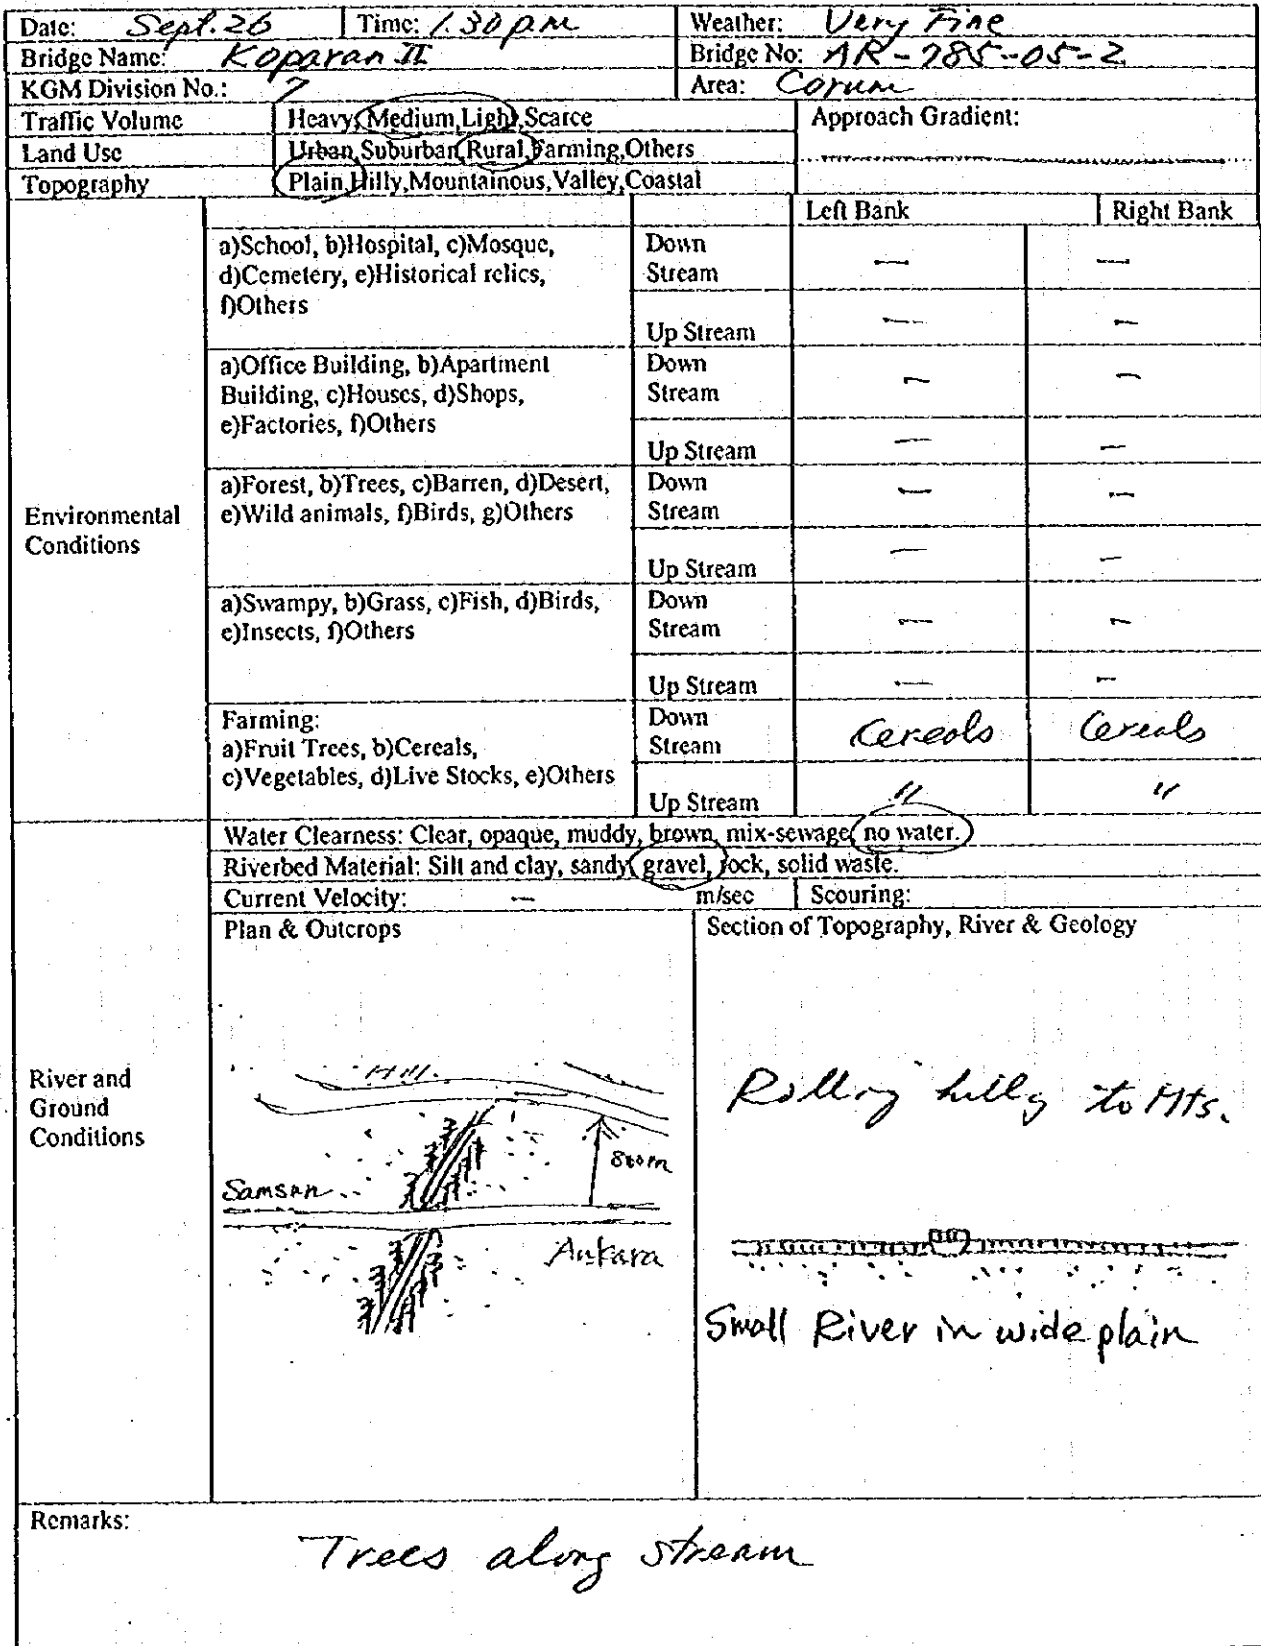 Date: Sept. 26 Time: 1.30 p.m Weather: Very Fine
Bridge Name: Koparan II Bridge No: AR-785-05-2
KGM Division No.: 7 Area: Corum
Traffic Volume Heavy,Medium,Light,Scarce Approach Gradient:
Land Use Urban,Suburban,Rural,Farming,Others
Topography Plain,Hilly,Mountainous,Valley,Coastal
Left Bank Right Bank
Environmental Conditions
a)School, b)Hospital, c)Mosque, Down — —
d)Cemetery, e)Historical relics, Stream
f)Others
Up Stream — —
a)Office Building, b)Apartment Down — —
Building, c)Houses, d)Shops, Stream
e)Factories, f)Others
Up Stream — —
a)Forest, b)Trees, c)Barren, d)Desert, Down — —
e)Wild animals, f)Birds, g)Others Stream
Up Stream — —
a)Swampy, b)Grass, c)Fish, d)Birds, Down — —
e)Insects, f)Others Stream
Up Stream — —
Farming: Down Cereals Cereals
a)Fruit Trees, b)Cereals, Stream
c)Vegetables, d)Live Stocks, e)Others
Up Stream " "
River and Ground Conditions
Water Clearness: Clear, opaque, muddy, brown, mix-sewage, no water.
Riverbed Material: Silt and clay, sandy, gravel, rock, solid waste.
Current Velocity: — m/sec Scouring:
Plan & Outcrops Section of Topography, River & Geology
Hill.
Rolling hilly to Mts.
800m
Samsun
Ankara
Small River in wide plain
Remarks:
Trees along stream